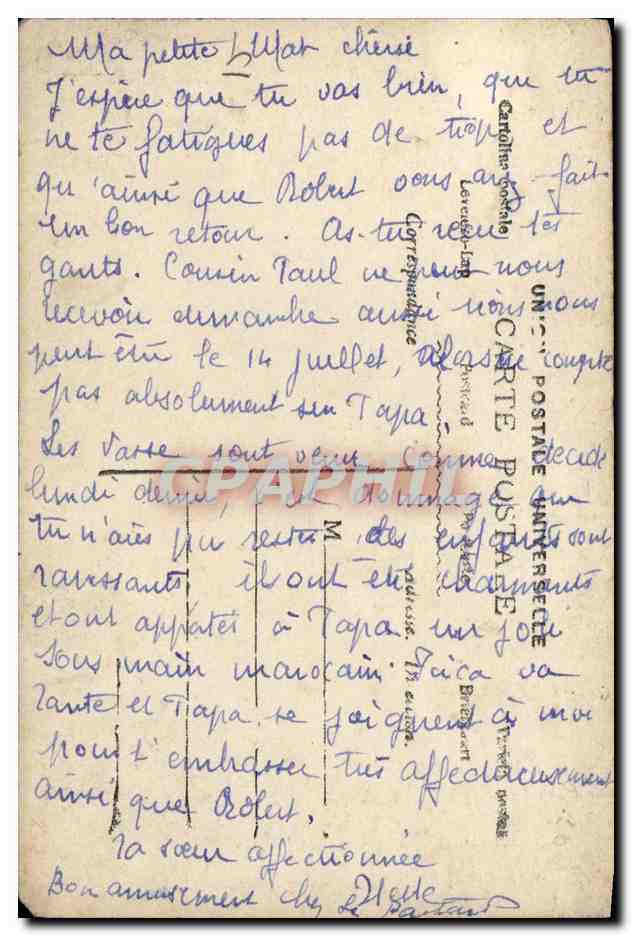 Ma petite Mat chérie
J'espère que tu vas bien, que tu
ne te fatigues pas de trop et
qu'ainsi que Robert vous avez fait
un bon retour. As-tu reçu tes
gants. Cousin Paul ne peut nous
recevoir dimanche aussi nous
peut être le 14 juillet, alors ne compte
pas absolument sur Papa.
Les Vasse sont venu comme décidé
lundi dernier, c'est dommage que
tu n'aies pu rester, des enfants sont
ravissants ils ont été charmants
et ont apporté à Papa un joli
sous main marocain. Ici ça va
Tante et Papa se joignent à moi
pour t'embrasser très affectueusement
ainsi que Robert.
Ta sœur affectionnée
Bon amusement chez
UNION POSTALE UNIVERSELLE
CARTE POSTALE
Cartolina postale
Levelező-Lap
Postcard
Correspondance
Adresse.
M
CPAPHIL